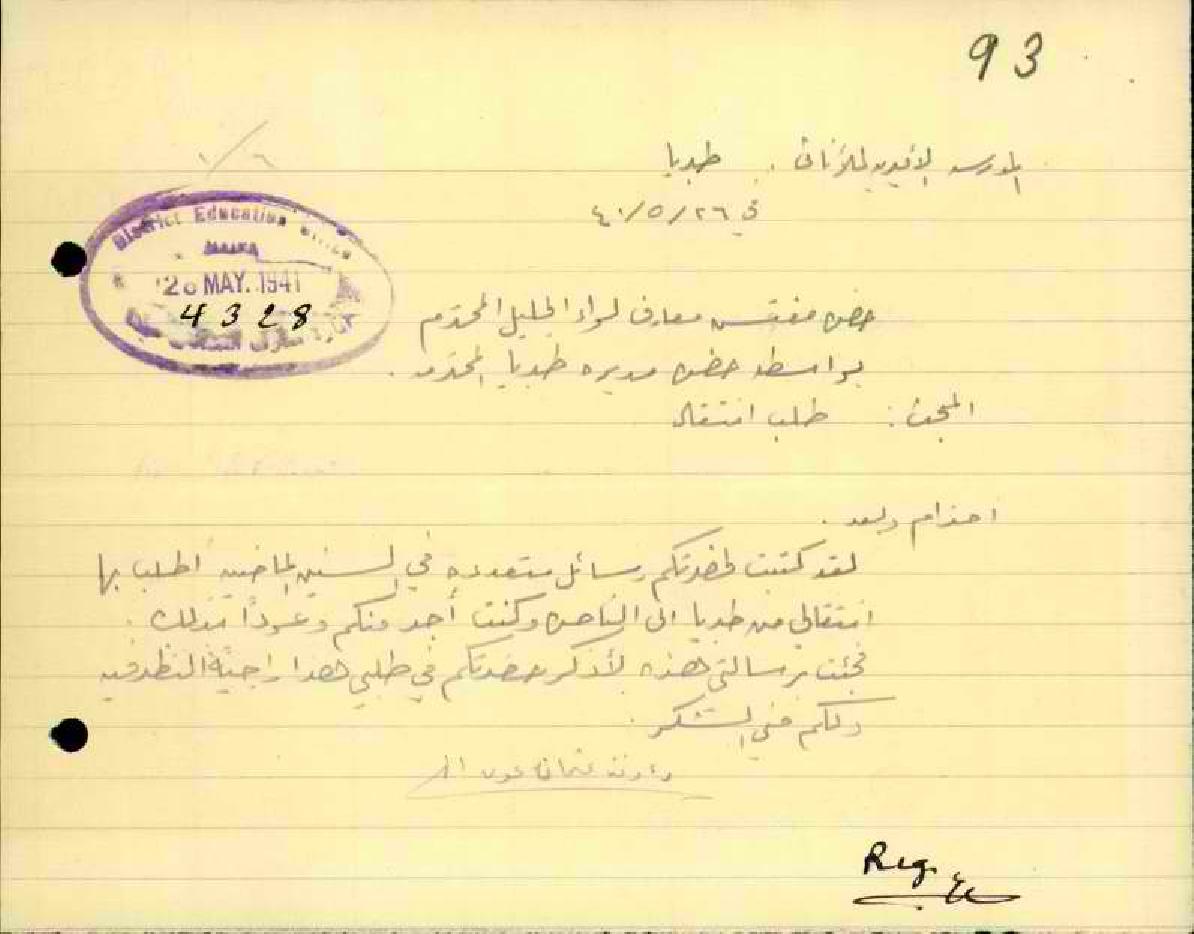 93
المدرسه الأميريه للاناث . طبريا
في ٢٦/٥/٤١
١/٦
District Education Office
HAIFA
26 MAY. 1941
4328
حضرة مفتش معارف لواء الجليل المحترم
بواسطه حضرة مديره طبريا المحترمه .
المبحث : طلب انتقال
احترام وبعد .
لقد كتبت لحضرتكم رسائل متعدده في السنين الماضيه اطلب بها
انتقالي من طبريا الى الناصره وكنت أجد منكم وعودًا بذلك .
فجئت برسالتي هذه لأذكر حضرتكم في طلبي هذا راجيةً النظر فيه
ولكم مني الشكر .
عثمان عون الله
Reg.